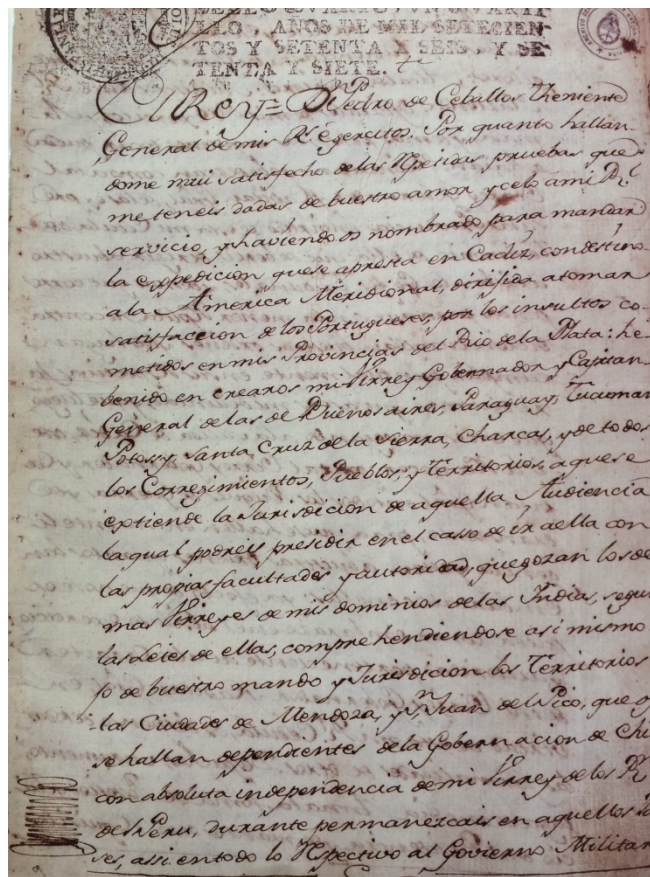 SELLO QUARTO, UN QUARTI
LLO, AÑOS DE MIL SETECIEN-
TOS Y SETENTA Y SEIS, Y SE-
TENTA Y SIETE.
El Rey = Dn Pedro de Ceballos Theniente
General de mis Rs. egercitos. Por quanto hallan-
dome mui satisfecho de las repetidas pruebas que
me teneis dadas de buestro amor y celo a mi Rl.
servicio, y haviendo os nombrado para mandar
la expedicion que se apresta en Cadiz, con destino
a la America Meridional, dirijida a tomar
satisfaccion de los Portugueses, por los insultos co-
metidos en mis Provincias del Rio de la Plata: he
benido en crearos mi Virrey Gobernador y Capitan
General de las de Buenosaires, Paraguay, Tucuman
Potosy, Santa Cruz de la Sierra, Charcas, y de todos
los Corregimientos, Pueblos, y Territorios, a que se
extiende la Jurisdicion de aquella Audiencia
la qual podreis presidir en el caso de ir a ella con
las propias facultades y autoridad, que gozan los de
mas Virreyes de mis dominios de las Indias, segu
las Leies de ellas, comprehendiendose asi mismo
de buestro mando y Jurisdicion los Territorios
las Ciudades de Mendoza, y Sn Juan del Pico, que
se hallan dependientes de la Gobernacion de Chi
con absoluta independencia de mi Virrey de los
del Peru, durante permanezcais en aquellos
ses, assi en todo lo respectivo al Govierno Militar